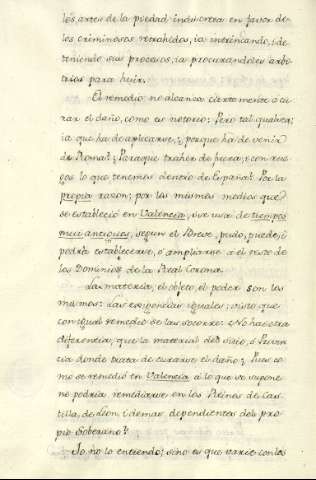 los, artes de la piedad indiscreta en favor de-
los criminosos retrahidos, ia intrincando, i de-
teniendo sus procesos, ia procurandoles arbi-
trios para huir.
El remedio no alcanza ciertamente a cu-
rar el daño, como es notorio: Pero tal qual sea,
ia que ha de aplicarse, ¿porque ha de venir
de Roma? ¿Paraque traher de fuera, i con rue-
gos lo que tenemos dentro de España? Por la
propia razon; por los mismos medios que
se estableció en Valencia, su uso de tiempos
mui antiguos, segun el Breve, pudo, i puede, i
podria establecerse, ó ampliarse a el resto de
los Dominios de la Real Corona.
La materia, el objeto, el poder son los
mismos: Las iguales; visto que
con igual remedio se las socorre: No hai otra
diferencia, que la material del sitio, ó Provin-
cia donde trata de curarse el daño; Pues co-
mo se remedió en Valencia a lo que se supone
no podria remediarse en los Reinos de Cas-
tilla, de Leon, i demas dependientes del pro-
pio Soberano?
Io no lo entiendo; sino es que varie con los